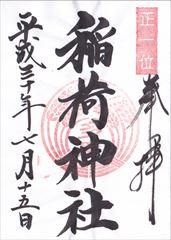 正一位
奉拝
稲荷神社
平成三十年七月十五日